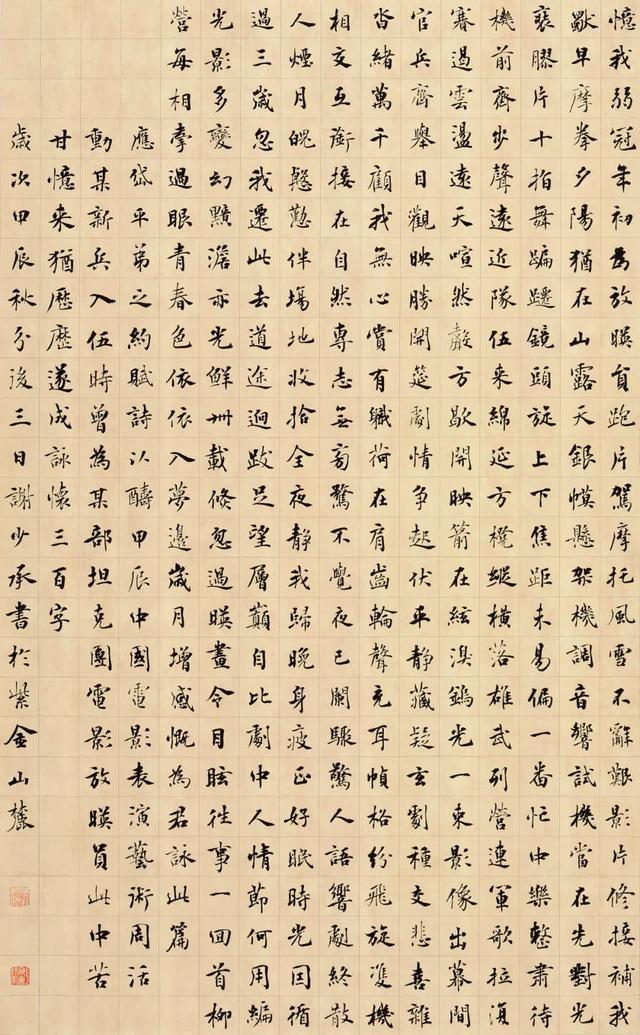 憶我弱冠年初為放映員跑片駕摩托風雪不辭艱影片修接補我
早摩拳夕陽猶在山露天銀幕懸架機調音響試機當在先對光
裹膠片十指舞蹁躚鏡頭旋上下焦距未易偏一番忙中樂整肅待
機前齊步聲遠近隊伍來綿延方欖縱橫落雄武列營連軍歌拉復
賽過雲盪遠天喧然嚴方歇開映箭在弦溴鎢光一束影像出幕間
官兵齊舉目觀映勝開筵劇情爭起伏平靜藏疑玄劇種交悲喜雜
沓緒萬千顧我無心賞有職荷在肩齒輪聲充耳幀格紛飛旋雙機
相交互銜接在自然專志無旁騖不覺夜已闌驟驚人語響劇終散
人煙月魄慇懃伴場地收拾全夜靜我歸晚身疲正好眠時光因循
過三歲忽我遷此去道途迥跂足望層巔自比劇中人情節何用編
光影多變幻黯澹亦光鮮卅載倏忽過映畫令目眩往事一回首柳
營每相牽過眼青春色依依入夢邊歲月增感慨為君詠此篇
應岱平弟之約賦詩以醻甲辰中國電影表演藝術周活
動某新兵入伍時曾為某部坦克團電影放映員此中苦
甘憶來猶歷歷遂成詠懷三百字
歲次甲辰秋分後三日謝少承書於紫金山麓